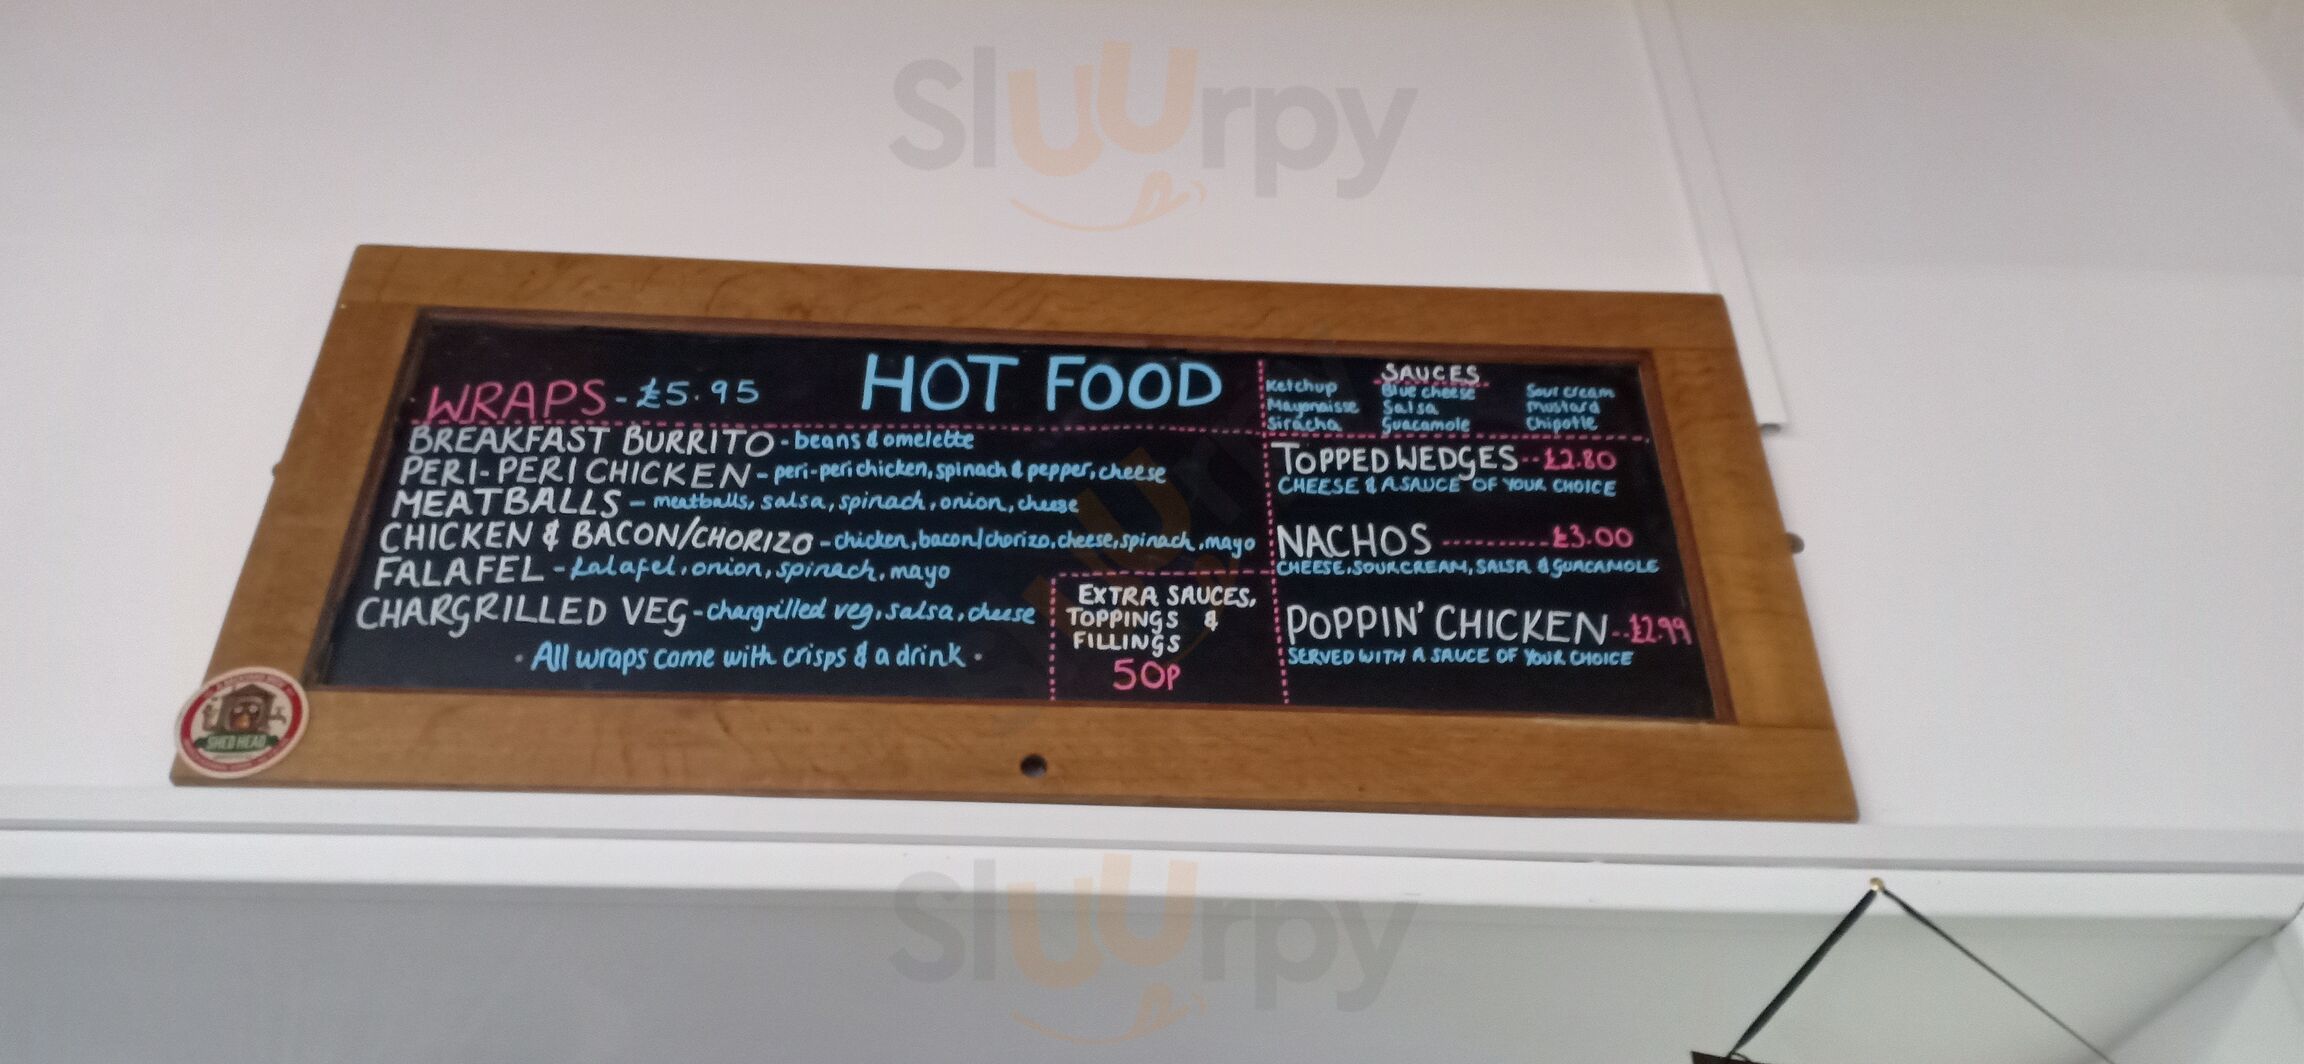 Sluurpy
HOT FOOD
WRAPS - £5.95
BREAKFAST BURRITO - beans & omelette
PERI-PERI CHICKEN - peri-peri chicken, spinach & pepper, cheese
MEATBALLS - meatballs, salsa, spinach, onion, cheese
CHICKEN & BACON/CHORIZO - chicken, bacon/chorizo, cheese, spinach, mayo
FALAFEL - falafel, onion, spinach, mayo
CHARGRILLED VEG - chargrilled veg, salsa, cheese
• All wraps come with crisps & a drink •
EXTRA SAUCES,
TOPPINGS &
FILLINGS
50P
SAUCES
Ketchup Blue cheese Sour cream
Mayonaisse Salsa Mustard
Siracha Guacamole Chipotle
TOPPED WEDGES -- £2.80
CHEESE & A SAUCE OF YOUR CHOICE
NACHOS ---------- £3.00
CHEESE, SOUR CREAM, SALSA & GUACAMOLE
POPPIN' CHICKEN -- £2.99
SERVED WITH A SAUCE OF YOUR CHOICE
SHED HEAD
Sluurpy